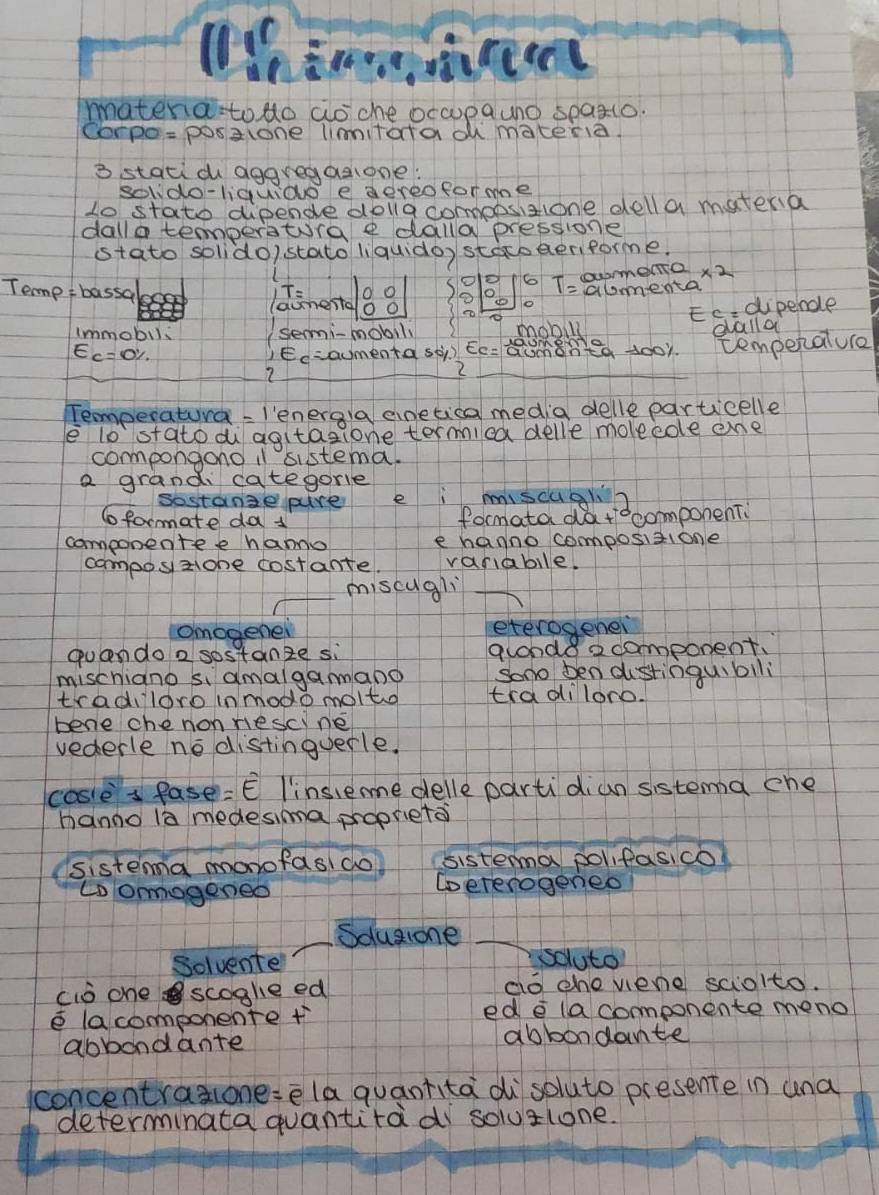 materia = tutto ciò che occupa uno spazio.
Corpo = porzione limitata di materia.
3 stati di aggregazione:
solido-liquido e aereoforme
Lo stato dipende dalla composizione della materia
dalla temperatura e dalla pressione
stato solido, stato liquido, stato aeriforme.
Temp = bassa
immobili
Ec = 0%
T =
aumenta
semi-mobili
Ec = aumenta 50%
T = aumenta x2
aumenta
mobili
aumenta
Ec = aumenta 100%
Ec = dipende
dalla
temperatura
Temperatura = l'energia cinetica media delle particelle
e lo stato di agitazione termica delle molecole che
compongono il sistema.
2 grandi categorie
sostanze pure e i miscugli
formate da 1
componente e hanno
composizione costante.
formata da + componenti
e hanno composizione
variabile.
miscugli
omogenei
quando 2 sostanze si
mischiano si amalgamano
tra di loro in modo molto
bene che non riesci né
vederle né distinguerle.
eterogenei
quando 2 componenti
sono ben distinguibili
tra di loro.
cos'è 1 fase = È l'insieme delle parti di un sistema che
hanno la medesima proprietà
sistema monofasico
omogeneo
sistema polifasico
eterogeneo
Soluzione
Solvente
ciò che scoglie ed
è la componente +
abbondante
soluto
ciò che viene sciolto.
ed è la componente meno
abbondante
concentrazione = è la quantità di soluto presente in una
determinata quantità di soluzione.